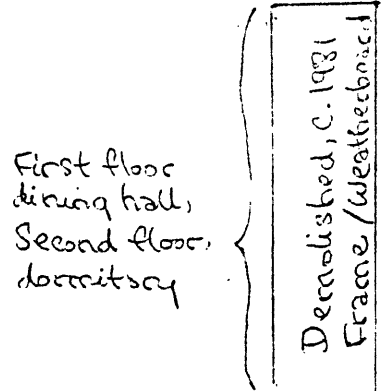 First floor
dining hall,
Second floor,
dormitory
Demolished, c. 1931
Frame/Weatherboard